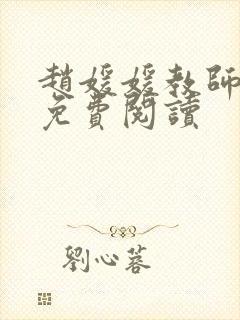 趙媛媛教師
免費閱讀
劉心蓉